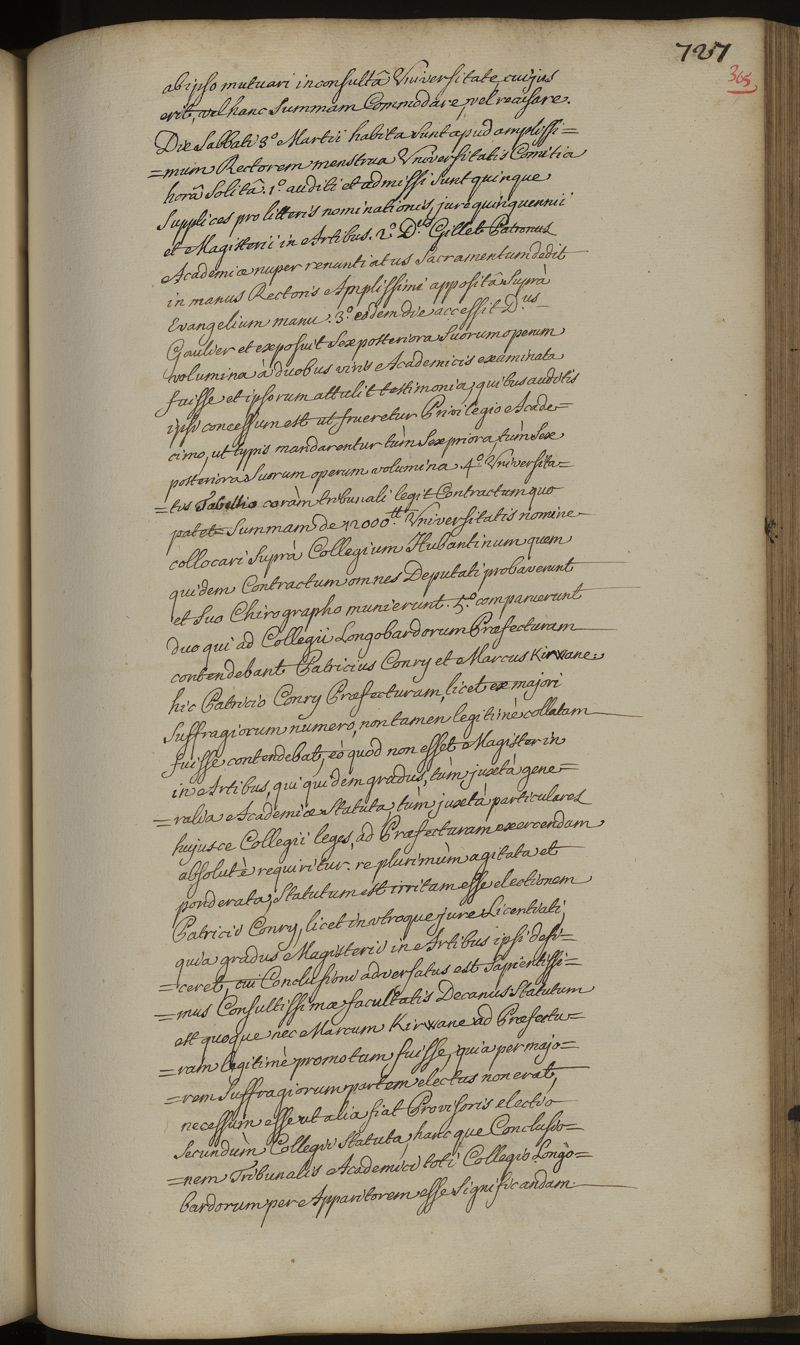 727
365
ab ipso mutuari inconsultâ Universitate, cuijus
erit, vel hanc Summam Commodare, vel recusare.
Die Sabbati 3.º Martii habita sunt apud amplissi=
=mum Rectorem menstrua Universitatis Comitia
horâ Solitâ. 1.º auditi et admissi sunt quinque
Supplices pro litteris nominationis, jure quinquennii
et Magisterii in Artibus. 2.º D.us Gillet Patronus
Academiæ nuper renuntiatus Sacramentum dedit
in manus Rectoris Amplissimi appositâ Suprà
Evangelium manu. 3.º eodem die accessit D.us
Goulier et exposuit Sex posteriora Suorum operum
volumina à duobus viris Academicis examinata
fuisse et ipsorum attulit testimonia; quibus auditis
ipsi concessum est ut frueretur Privilegio Acade=
cimo, ut typis mandarentur tùm Sex priora, tùm Sex
posteriora Suorum operum volumina. 4.º Universita=
=tis Tabellio coràm tribunali legit Contractum quo
patet Summam de 12000.tt Universitatis nomine
collocari Suprà Collegium Hubantinum quem
quidem Contractum omnes Deputati probaverunt
et Suo Chirographo munierunt. 5.º comparuerunt
duo qui ad Collegii Longobardorum Præfecturam
contendebant Patricius Conry et Marcus Kirwane:
hic Patricio Conry Præfecturam, licet ex majori
Suffragiorum numero, non tamen legitimè collatam
fuisse contendebat, eò quod non esset Magister in
in Artibus, qui quidem gradus, tùm juxtà gene=
=ralia Academiæ Statuta, tùm juxtà particulares
hujusce Collegii leges, ad Præfecturam exercendam
absolutè requiritur. re plurimùm agitata et
ponderata, Statutum est irritam esse electionem
Patricii Conry, licet in utroque jure Licentiati,
quia gradus Magisterii in Artibus ipsi defi=
=ceret, cui Conclusioni adversatus est Sapientissi=
=mus Consultissimæ facultatis Decanus: Statutum
est quoque nec Marcum Kirwane ad Præfectu=
=ram legitimè promotum fuisse, quia per majo=
=rem Suffragiorum partem electus non erat,
necessum esse ut alia fiat Provisoris electio
Secundùm Collegii Statuta, hancque Conclusio=
=nem Tribunalis Academici toti Collegio Longo=
bardorum per Apparitorem esse Significandam.